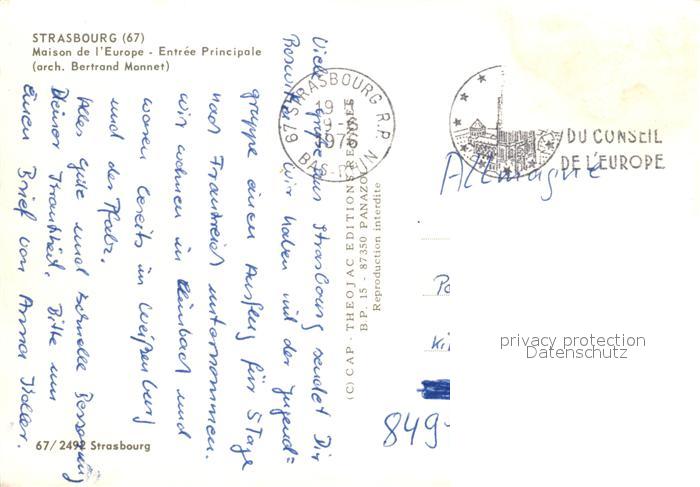 STRASBOURG (67)
Maison de l'Europe - Entrée Principale
(arch. Bertrand Monnet)
Viele Grüße aus Strasbourg sendet Dir
Wir haben mit der Jugend=
gruppe einen Ausflug für 5 Tage
nach Frankreich unternommen.
Wir wohnen in und
waren bereits in Weißenburg
und der Pfalz.
Alles gute und schnelle Besserung
Deiner Krankheit. Bitte um
einen Brief von Anna
67/2492 Strasbourg
(C) CAP - THEOJAC EDITIONS
B.P. 15 - 87350 PANAZOL
Reproduction interdite
67 STRASBOURG R.P.
BAS-RHIN
DU CONSEIL
DE L'EUROPE
Allemagne
849
privacy protection
Datenschutz